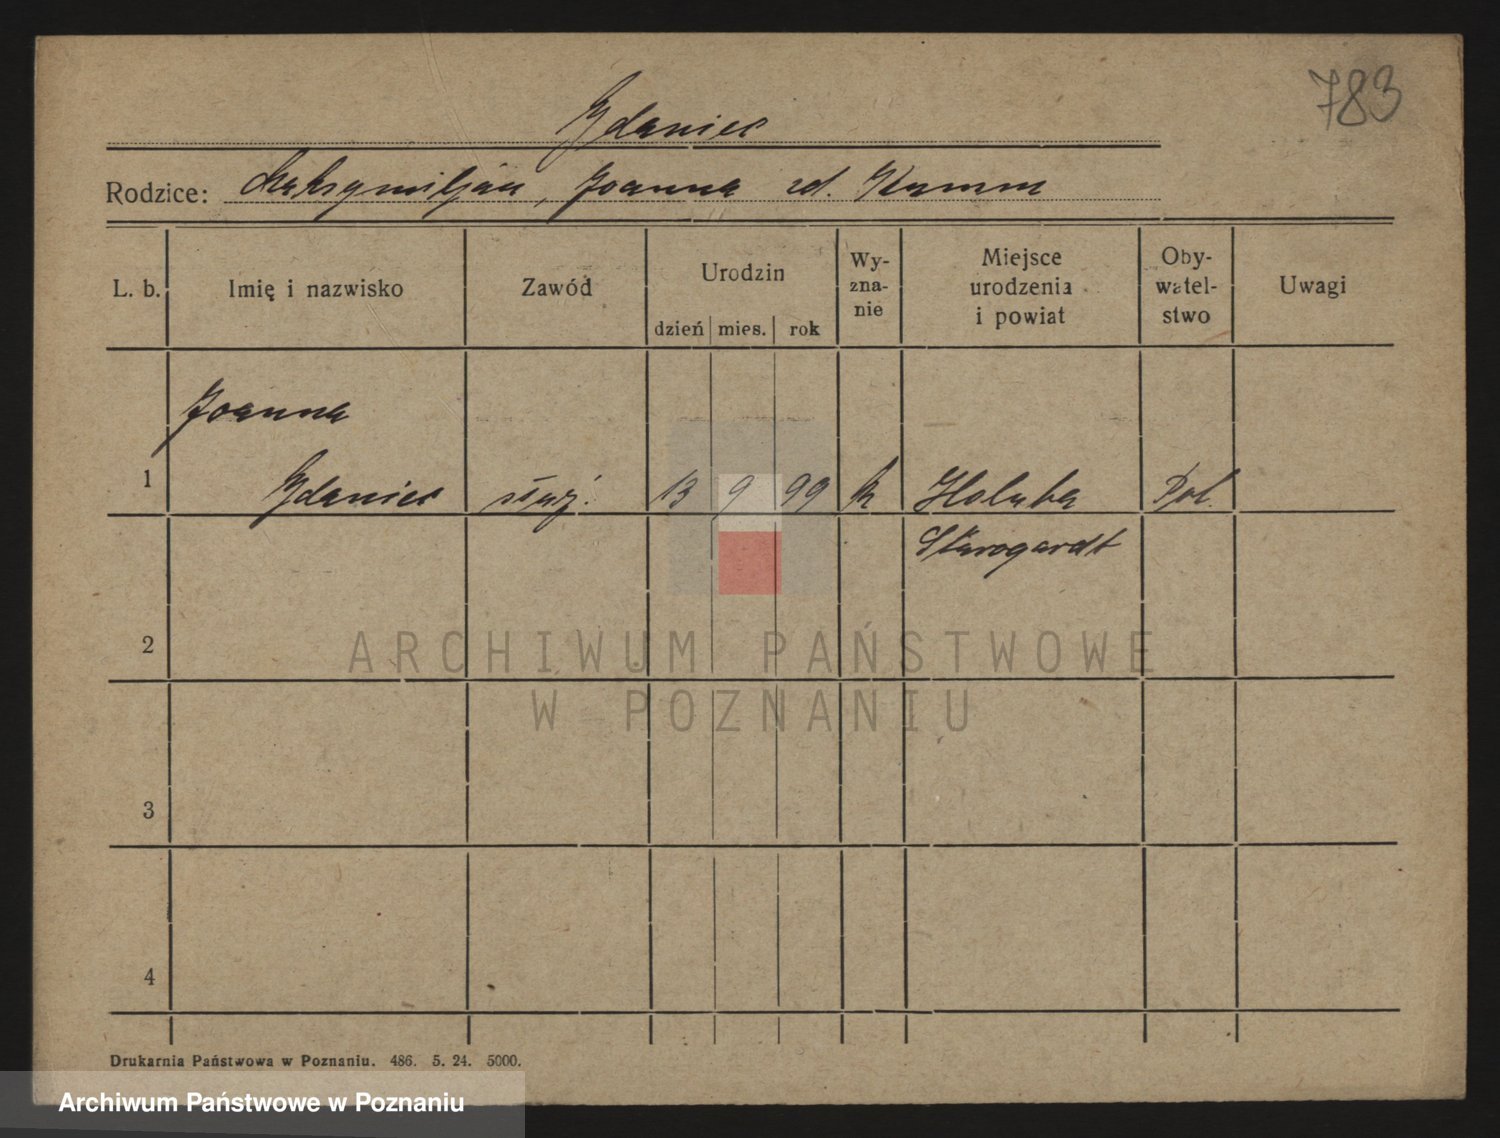 783
Gdaniec
Rodzice: Maksymiljan, Joanna zd. Kamm
L. b. Imię i nazwisko Zawód Urodzin dzień mies. rok Wy-zna-nie Miejsce urodzenia i powiat Oby-watel-stwo Uwagi
Joanna
1 Gdaniec służ. 13 9 99 k Pol.
Starogardt
2
ARCHIWUM PAŃSTWOWE
W POZNANIU
3
4
Drukarnia Państwowa w Poznaniu. 486. 5. 24. 5000.
Archiwum Państwowe w Poznaniu